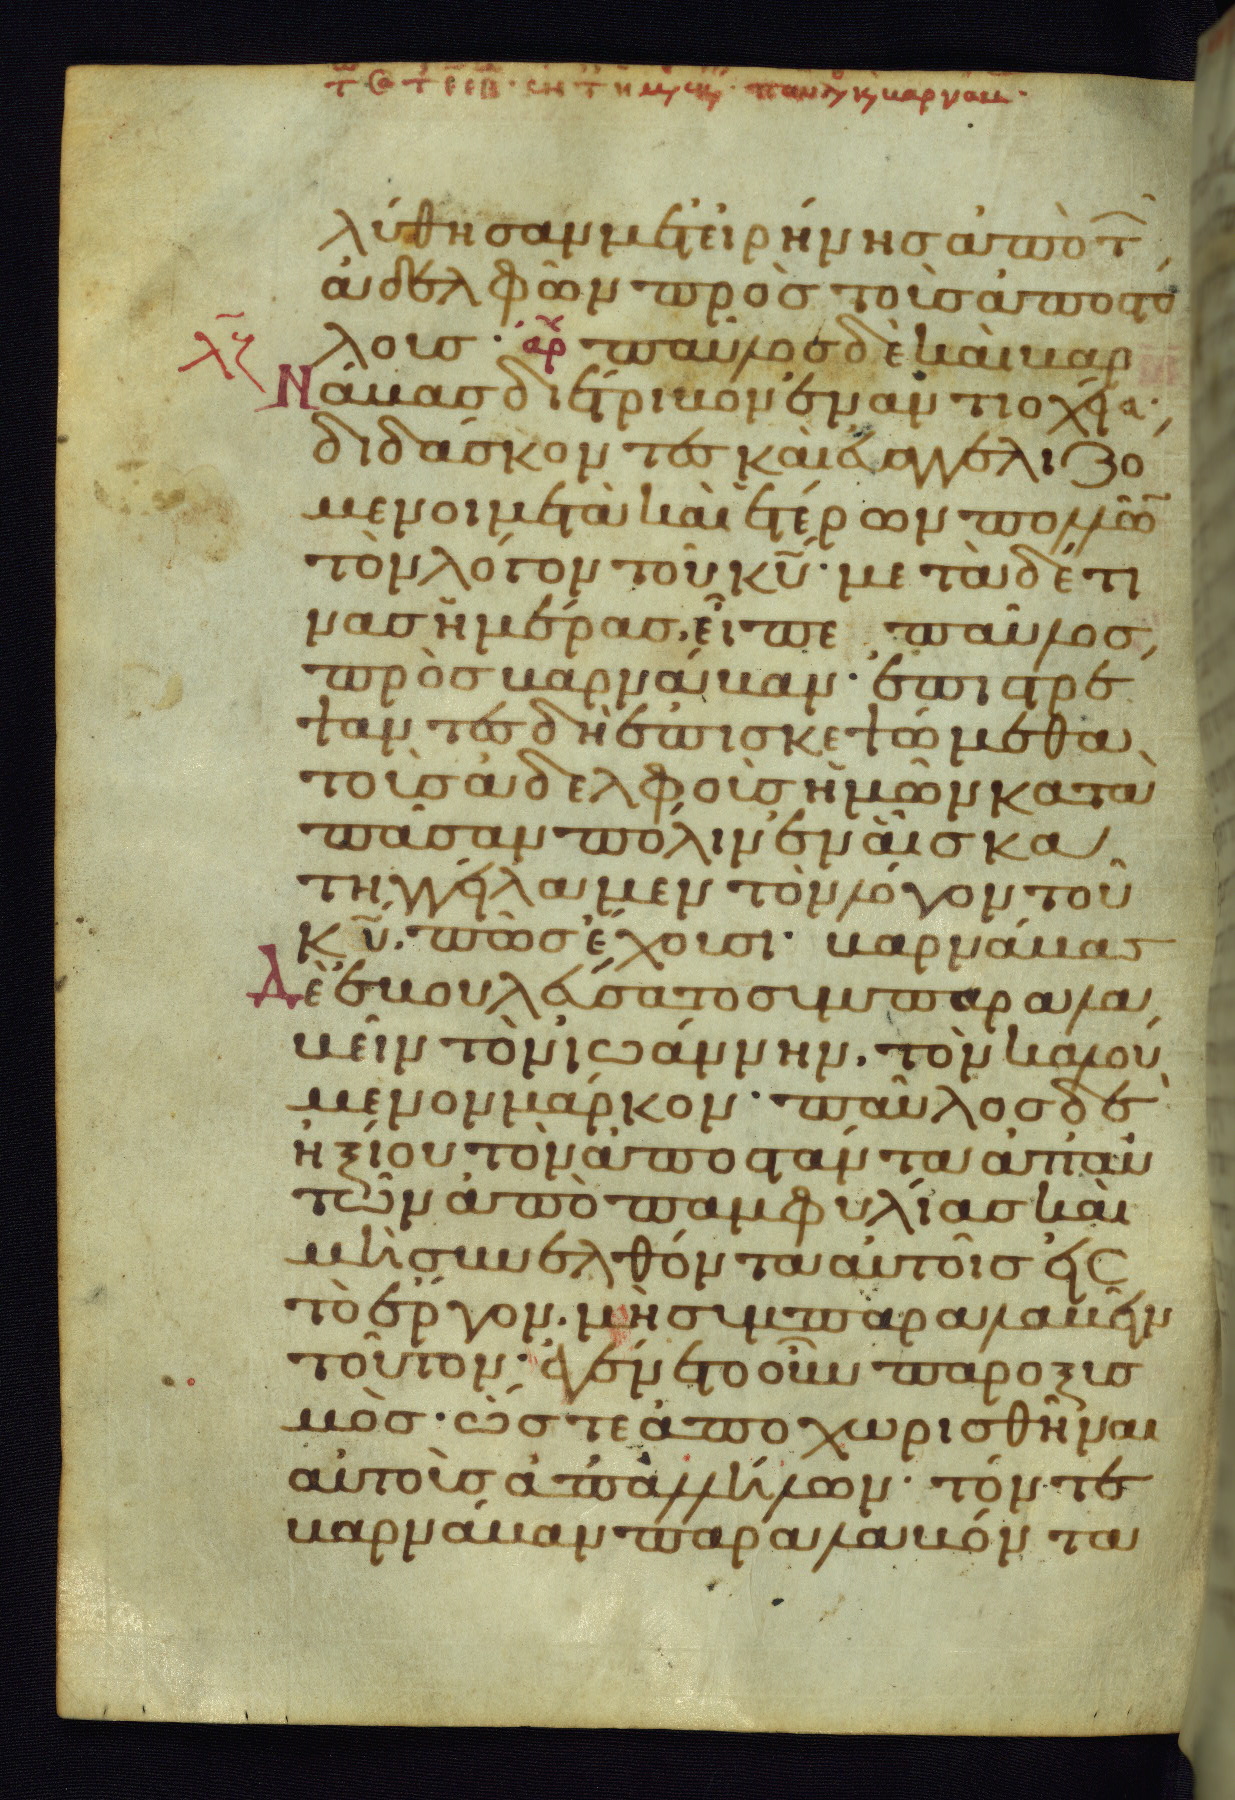 λύθησαν μετ εἰρήνης ἀπὸ τ
ἀδελφῶν πρὸς τοὺς ἀποστό
λους · ἀρχ παῦλος δὲ καὶ βαρ
λζ
Νάβας διέτριβον ἐν ἀντιοχεία·
διδάσκοντες καὶ εὐαγγελιζό
μενοι μετὰ καὶ ἑτέρων πολλῶ
τὸν λόγον τοῦ κῦ · μετὰ δέ τι
νας ἡμέρας, εἶπε παῦλος,
πρὸς βαρνάβαν · ἐπιστρέ
ψαντες δὴ ἐπισκεψώμεθα
τοὺς ἀδελφοὺς ἡμῶν κατὰ
πᾶσαν πόλιν ἐν αἷς κα
τηγγείλαμεν τὸν λόγον τοῦ
κῦ, πῶς ἔχουσι · βαρνάβας
Δὲ ἐβουλεύσατο συμπαραλα
βεῖν τὸν ἰωάννην, τὸν καλού
μενον μάρκον · παῦλος δὲ
ἠξίου τὸν ἀποστάντα ἀπ αὐ
τῶν ἀπὸ παμφυλίας καὶ
μὴ συνελθόντα αὐτοῖς εἰς
τὸ ἔργον, μὴ συμπαραλαβεῖν
τοῦτον · ἐγένετο οὖν παροξυσ
μὸς · ὥστε ἀποχωρισθῆναι
αὐτοὺς ἀπ ἀλλήλων · τόν τε
βαρνάβαν παραλαβόντα